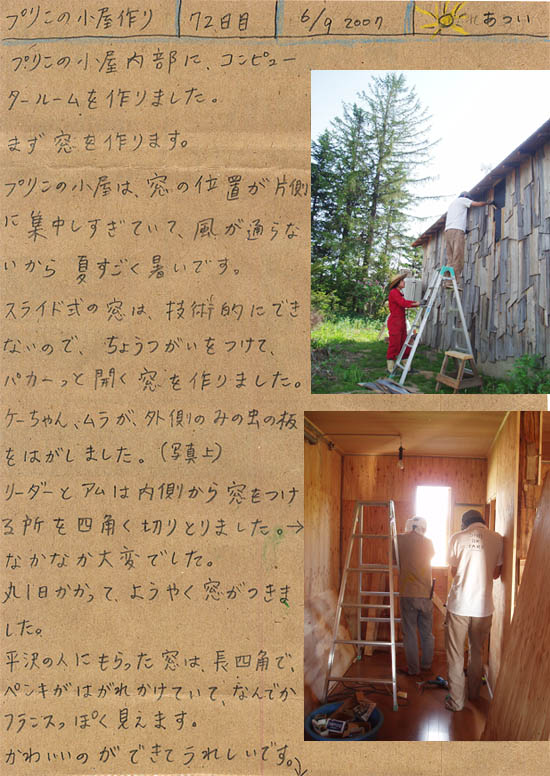 プリンの小屋作り 72日目 6/9 2007 あつい
プリンの小屋内部に、コンピュー
タールームを作りました。
まず窓を作ります。
プリンの小屋は、窓の位置が片側
に集中しすぎていて、風が通らな
いから夏すごく暑いです。
スライド式の窓は、技術的にでき
ないので、ちょうつがいをつけて、
パカーっと開く窓を作りました。
ケーちゃん、ムラが、外側のみの虫の板
をはがしました。(写真上)
リーダーとアムは内側から窓をつけ
る所を四角く切りとりました。→
なかなか大変でした。
丸1日かかって、ようやく窓がつきま
した。
平沢の人にもらった窓は、長四角で、
ペンキがはがれかけていて、なんでか
フランスっぽく見えます。
かわいいのができてうれしいです。